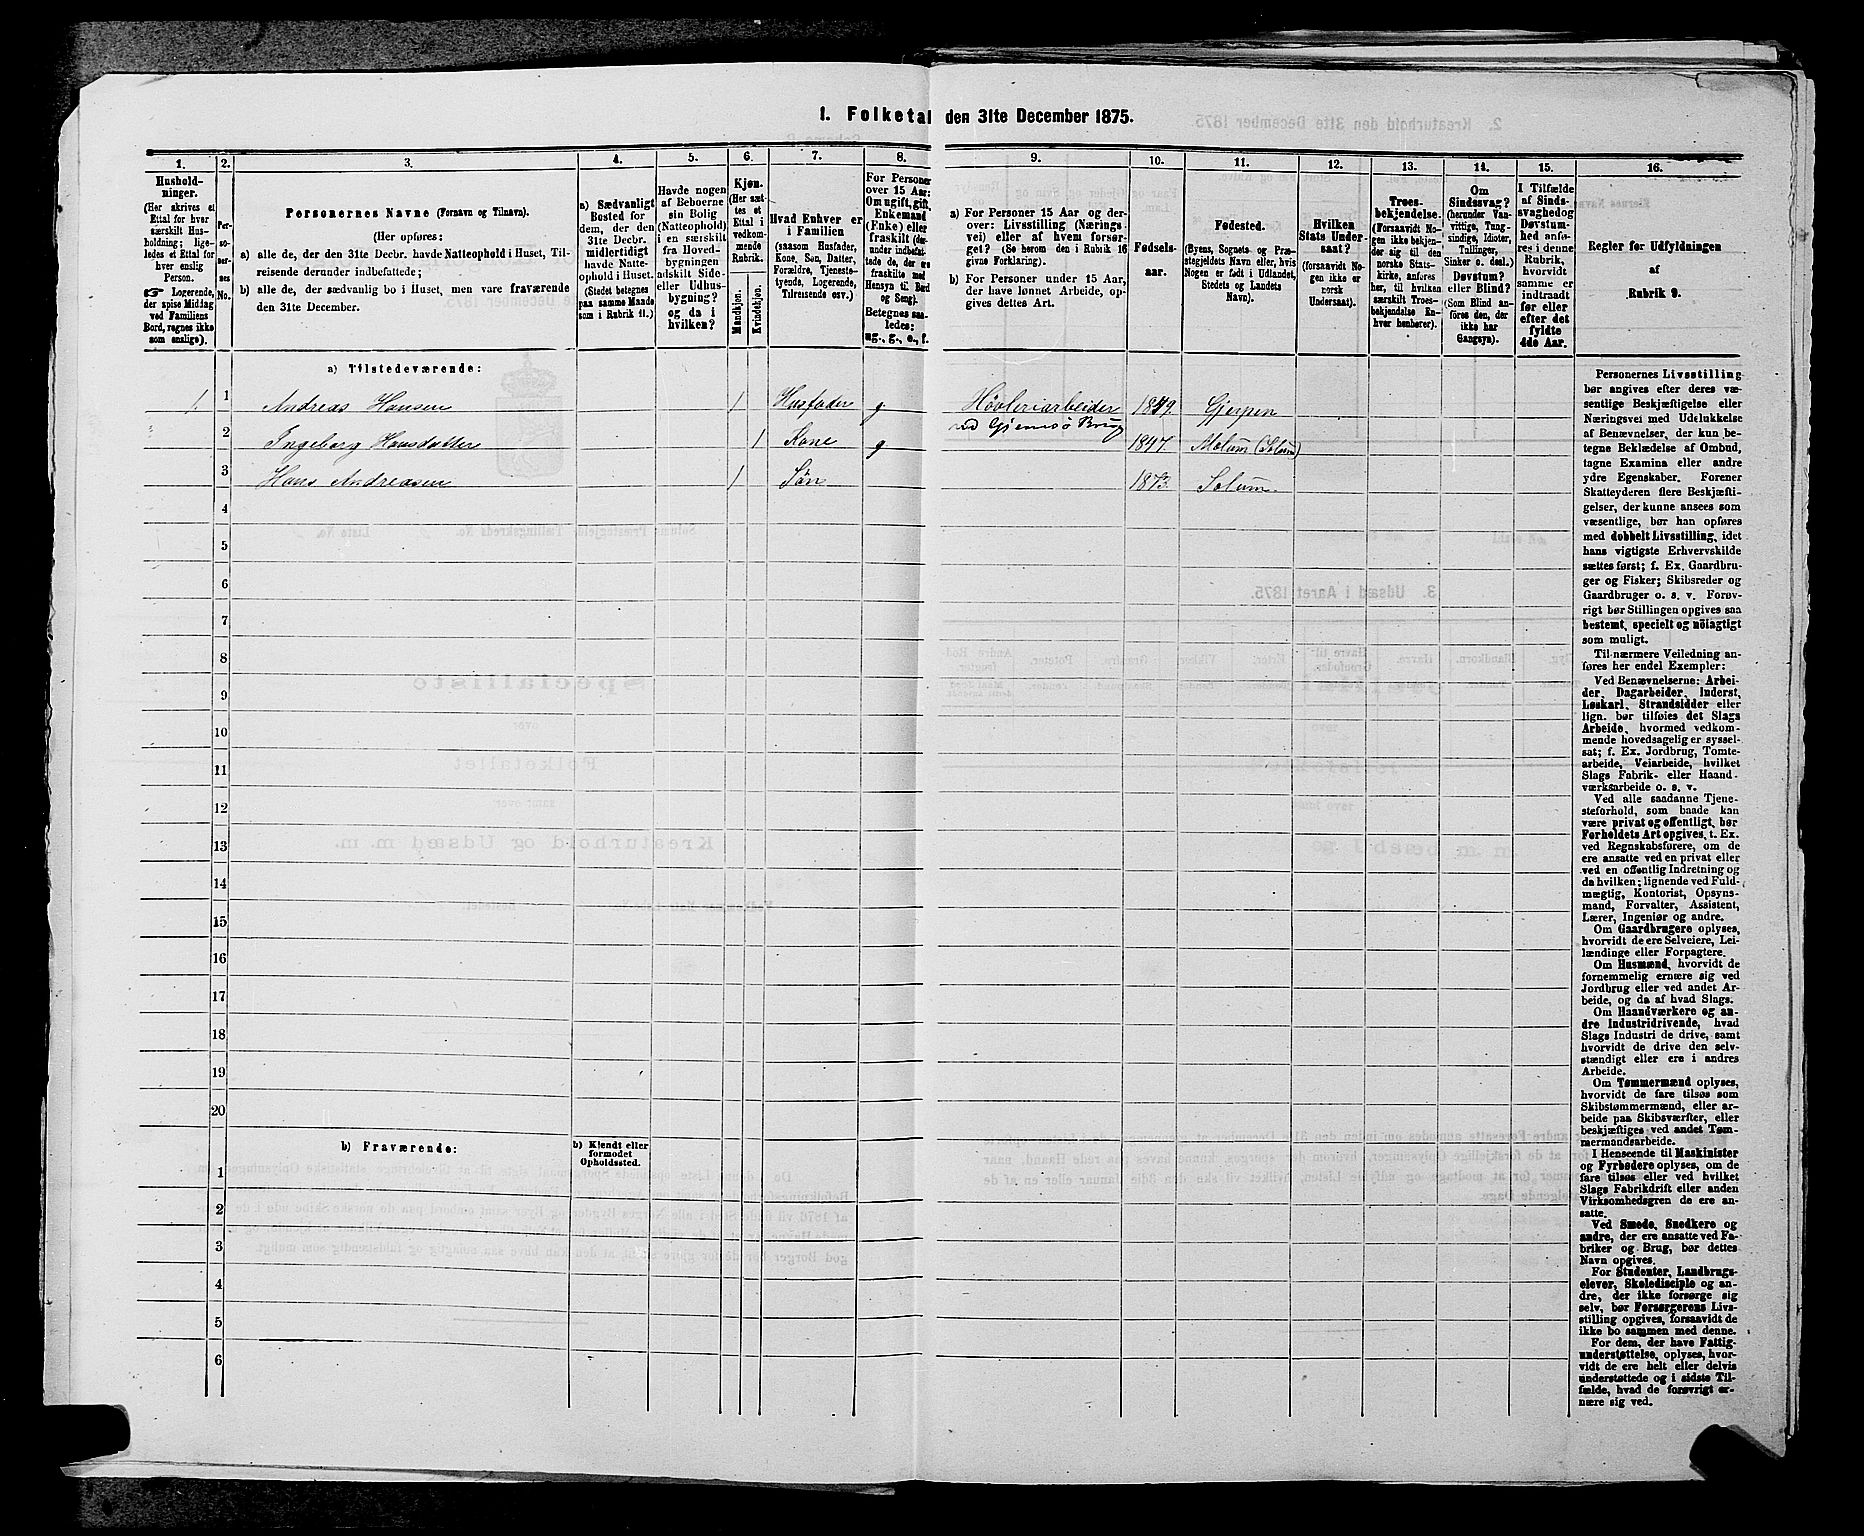 1. Folketal den 31te December 1875.
1.
Hushold-
ninger.
(Her skrives et
Ettal for hver
særskilt Hus-
holdning; lige-
ledes et Ettal for
hver enslig
Person.
☞ Logerende,
der spise Middag
ved Familiens
Bord, regnes ikke
som enslige).
2.
Per-
so-
ner-
nes
No.
3.
Personernes Navne (Fornavn og Tilnavn).
(Her opføres:
a) alle de, der den 31te Decbr. havde Natteophold i Huset, Til-
reisende derunder indbefattede;
b) alle de, der sædvanlig bo i Huset, men vare fraværende
den 31te December.
4.
a) Sædvanligt
Bosted for
dem, der den
31te Decbr.
midlertidigt
havde Natte-
ophold i Huset.
(Stedet betegnes
paa samme Maade
som i Rubrik 11.)
5.
Havde nogen
af Beboerne
sin Bolig
(Natteophold)
i en særskilt
fra Hoved-
bygningen
adskilt Side-
eller Udhus-
bygning?
og da i
hvilken?
6.
Kjøn.
(Her sæt-
tes et
Ettal i
vedkom-
mende
Rubrik.
Mandkjøn.
Kvindekjøn.
7.
Hvad Enhver er
i Familien
(saasom Husfader,
Kone, Søn, Datter,
Forældre, Tjeneste-
tyende, Logerende,
Tilreisende osv.)
8.
For Personer
over 15 Aar:
Om ugift, gift,
Enkemand
(Enke) eller
fraskilt (der-
under indbefat-
tede de, der ere
fraskilte med
Hensyn til Bord
og Seng).
Betegnes saa-
ledes:
ug., g., e., f.
9.
a) For Personer 15 Aar og der-
over: Livsstilling (Nærings-
vei) eller af hvem forsør-
get? (Se herom den i Rubrik 16
givne Forklaring).
b) For Personer under 15 Aar,
der have lønnet Arbeide, op-
gives dettes Art.
10.
Fødsels-
aar.
11.
Fødested.
(Byens, Sognets og Præ-
stegjeldets Navn eller, hvis
Nogen er født i Udlandet,
Stedets og Landets
Navn).
12.
Hvilken
Stats Under-
saat?
(forsaavidt No-
gen ikke er
norsk
Undersaat).
13.
Troes-
bekjendelse.
(Forsaavidt No-
gen ikke bekjen-
der sig til den
norske Stats-
kirke, anføres
her, til hvilken
særskilt Troes-
bekjendelse En-
hver henhører).
14.
Om
Sindssvag?
(herunder Van-
vittige, Tung-
sindige, Idioter,
Tullinger,
Sinker o. desl.)
Døvstum?
eller Blind?
(Som Blind an-
føres den, der
ikke har
Gangsyn).
15.
I Tilfælde
af Sinds-
svaghed og
Døvstum-
hed anfø-
res i denne
Rubrik,
hvorvidt
samme er
indtraadt
før eller
efter det
fyldte
4de Aar.
16.
Regler for Udfyldningen
af
Rubrik 9.
a) Tilstedeværende:
1. 1 Andreas Hansen 1 Husfader g Høvleriarbeider ved Gjemsø Brug 1849. Gjerpen
" 2 Ingeborg Hansdatter 1 Kone g 1847. Molum (Solum)
3 Hans Andreasen 1 Søn 1873. Solum.
4
5
6
7
8
9
10
11
12
13
14
15
16
17
18
19
20
b) Fraværende:
b) Kjendt eller
formodet
Opholdssted.
1
2
3
4
5
6
Personernes Livsstilling
bør angives efter deres væ-
sentlige Beskjæftigelse eller
Næringsvei med Udelukkelse
af Benævnelser, der kun be-
tegne Beklædelse af Ombud,
tagne Examina eller andre
ydre Egenskaber. Forener
Skatteyderen flere Beskjæfti-
gelser, der kunne ansees som
væsentlige, bør han opføres
med dobbelt Livsstilling, idet
hans vigtigste Erhvervskilde
sættes først; f. Ex. Gaardbru-
ger og Fisker; Skibsreder og
Gaardbruger o. s. v. Forøv-
rigt bør Stillingen opgives saa
bestemt, specielt og nöiagtigt
som muligt.
Til nærmere Veiledning an-
føres her endel Exempler:
Ved Benævnelserne: Arbei-
der, Dagarbeider, Inderst,
Løskarl, Strandsidder eller
lign. bør tilføies det Slags
Arbeide, hvormed vedkom-
mende hovedsagelig er syssel-
sat; f. Ex. Jordbrug, Tomte-
arbeide, Veiarbeide, hvilket
Slags Fabrik- eller Haand-
værksarbeide o. s. v.
Ved alle saadanne Tjene-
steforhold, som baade kan
være privat og offentligt, bør
Forholdets Art opgives, t. Ex.
ved Regnskabsførere, om de
ere ansatte ved en privat eller
ved en offentlig Indretning og
da hvilken; lignende ved Fuld-
mægtig, Kontorist, Opsyns-
mand, Forvalter, Assistent,
Lærer, Ingeniør og andre.
Om Gaardbrugere oplyses,
hvorvidt de ere Selveiere, Lei-
lændinge eller Forpagtere.
Om Husmænd, hvorvidt de
fornemmelig ernære sig ved
Jordbrug eller ved andet Ar-
beide, og da af hvad Slags.
Om Haandværkere og an-
dre Industridrivende, hvad
Slags Industri de drive, samt
hvorvidt de drive den selv-
stændigt eller ere i andres
Arbeide.
Om Tømmermænd oplyses,
hvorvidt de fare tilsøs som
Skibstømmermænd, eller ar-
beide paa Skibsværfter, eller
beskjæftiges ved andet Tøm-
mermandsarbeide.
I Henseende til Maskinister
og Fyrbødere oplyses, om de
fare tilsøs eller ved hvilket
Slags Fabrikdrift eller anden
Virksomhedsgren de ere an-
satte.
Ved Smede, Snedkere og
andre, der ere ansatte ved Fa-
briker og Brug, bør dettes
Navn opgives.
For Studenter, Landbrugs-
elever, Skoledisciple og an-
dre, der ikke forsørge sig
selv, bør Forsørgerens Livs-
stilling opgives, forsaavidt de
ikke bo sammen med denne.
For dem, der have Fattig-
understøttelse, oplyses, hvor-
vidt de ere helt eller delvis
understøttede og i sidste Til-
fælde, hvad de forøvrigt er-
nære sig ved.